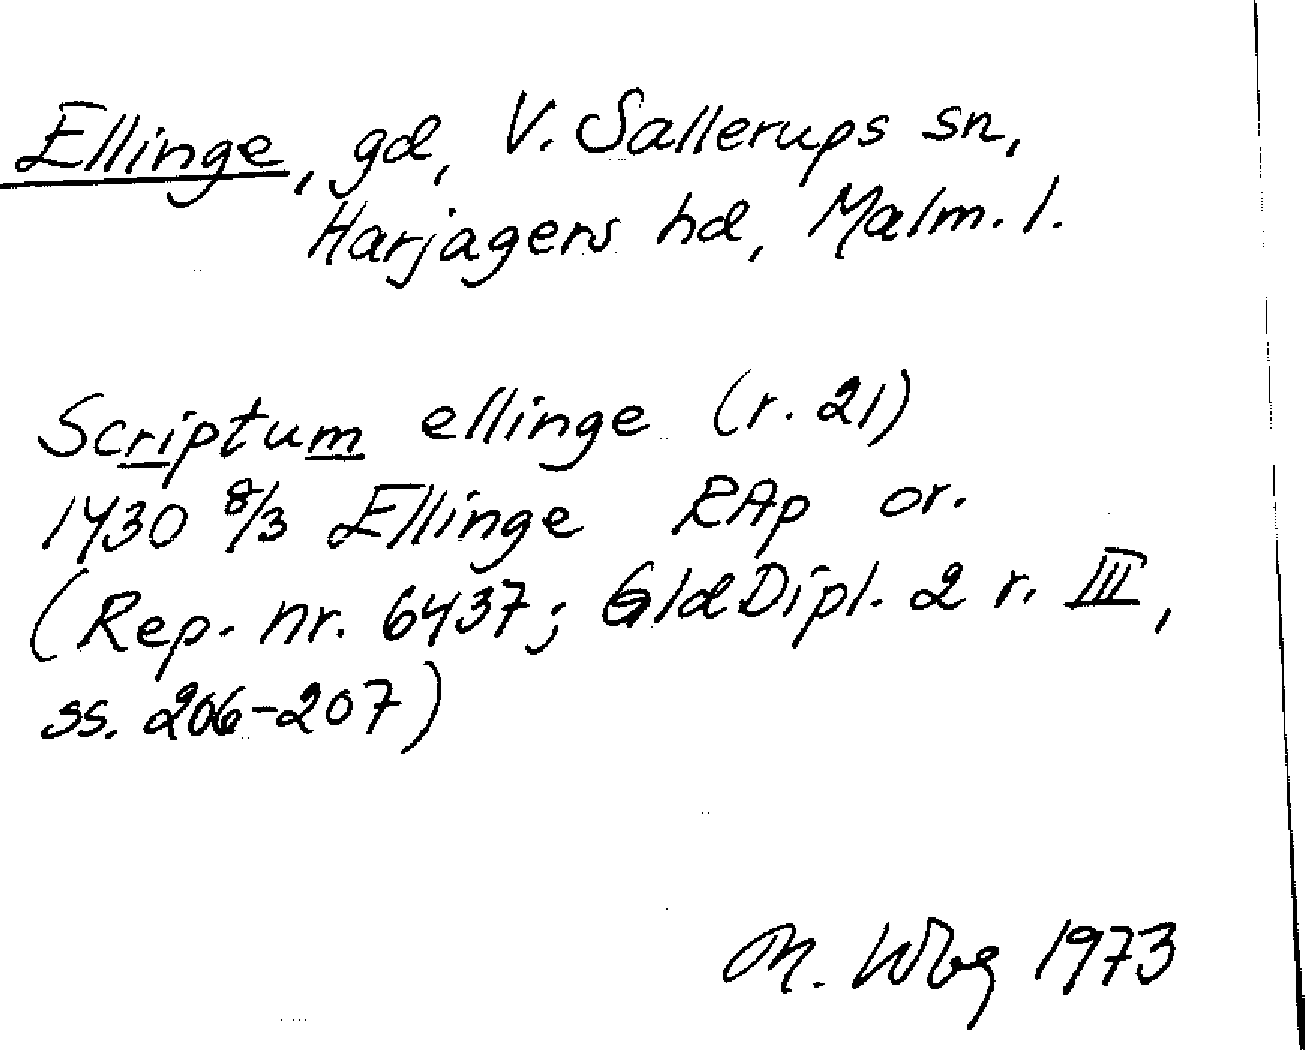 Ellinge, gd, V. Sallerups sn,
Harjagers hd, Malm. l.
Scriptum ellinge (r. 21)
1430 8/3 Ellinge RAp or.
(Rep. nr. 6437; GldDipl. 2 r. III,
ss. 206-207)
M. Wbg 1973